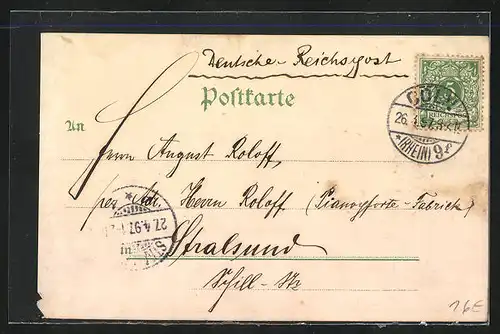 Deutsche Reichspost
Postkarte
CÖLN
26.4.97
*(RHEIN) 9*
An
Herrn August Roloff,
per Adr. Herrn Roloff (Pianoforte-Fabrick)
27.4.97
in Stralsund
Schill-Str
16E